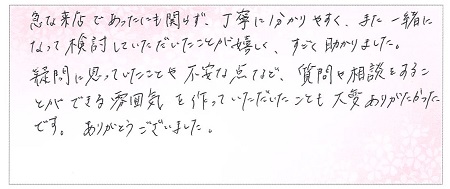 急な来店であったにも関らず、丁寧に分かりやすく、また一緒に
なって検討していただいたことが嬉しく、すごく助かりました。
疑問に思っていたことや不安な点など、質問や相談をするこ
とができる雰囲気を作っていただいたことも大変ありがたかった
です。ありがとうございました。